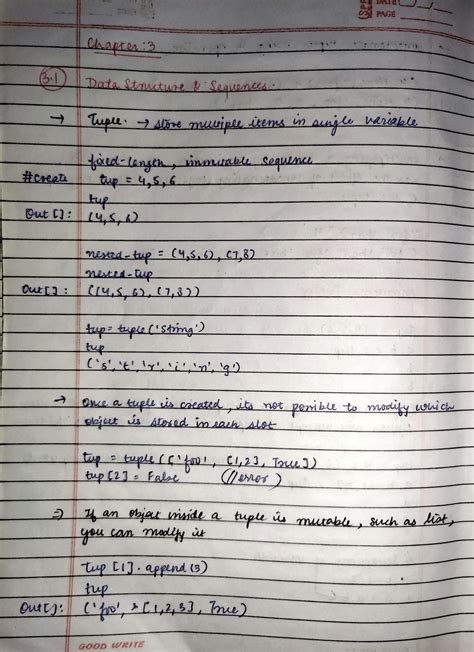 DATE: / /
PAGE
Chapter: 3
3.1 Data Structure & Sequences.
→ Tuple. → store multiple items in single variable
fixed-length, immutable sequence
#create tup = 4,5,6
tup
Out []: (4,5,6)
nested-tup = (4,5,6), (7,8)
nested-tup
Out[]: ((4,5,6), (7,8))
tup = tuple ('String')
tup
('s', 't', 'r', 'i', 'n', 'g')
→ Once a tuple is created, its not possible to modify which
object is stored in each slot
tup = tuple (['foo', [1,2], True])
tup [2] = False (//error)
⇒ If an object inside a tuple is mutable, such as list,
you can modify it
tup [1].append (3)
tup
Out[]: ('foo', [1,2,3], True)
GOOD WRITE